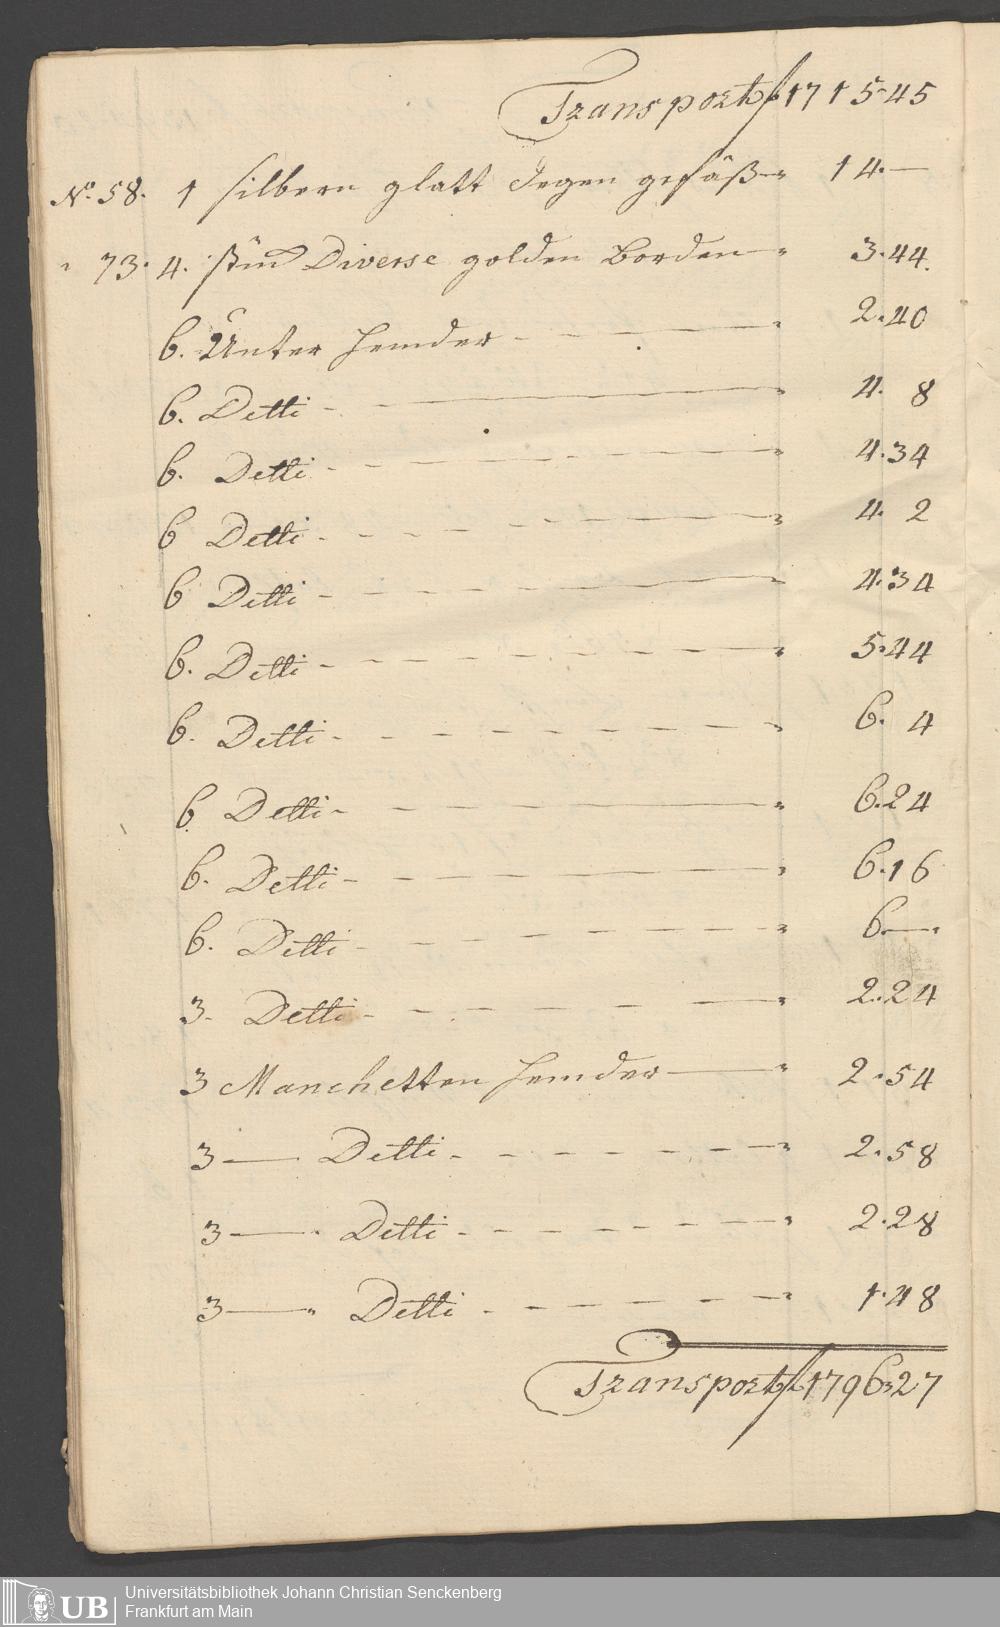 Transport f 1715.45
No. 58. 1 silbern glatt Degen gefäß 14.—
" 73. 4. Diverse golden Borden " 3.44.
6. Unter Hemder - - - - " 2.40
6. Detti - " 4. 8
6. Detti - - - - - " 4.34
6 Detti - - - - - " 4. 2
6 Detti - - - - - " 4.34
6. Detti - - - - - " 5.44
6. Detti - - - - - " 6. 4
6 Detti - - - " 6.24
6. Detti - - - " 6.16
6. Detti - - - - - " 6.—
3. Detti - - - - - " 2.24
3 Manchetten Hemder — " 2.54
3 — Detti - - - - - " 2.58
3 — Detti - - - - - " 2.28
3 — " Detti - - - - - " 1.48
Transport f 1796.27
UB
Universitätsbibliothek Johann Christian Senckenberg
Frankfurt am Main